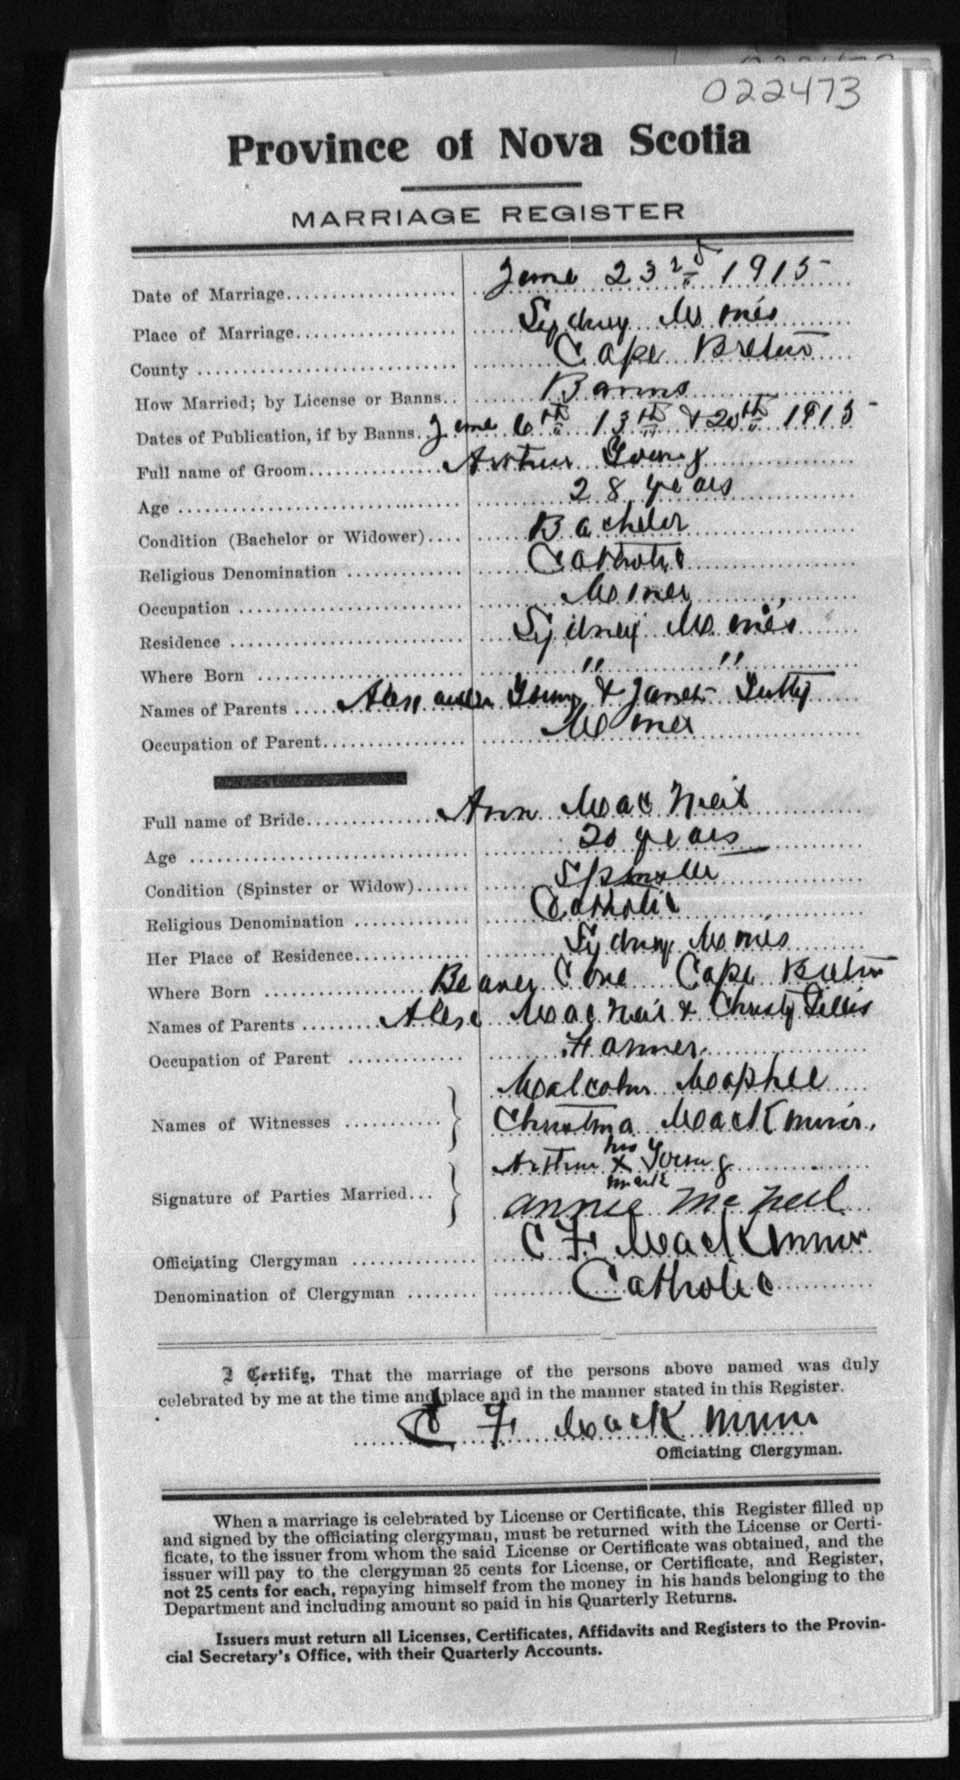 022473
Province of Nova Scotia
MARRIAGE REGISTER
Date of Marriage.................... June 23rd 1915
Place of Marriage................... Sydney Mines
County ............................. Cape Breton
How Married; by License or Banns.. Banns
Dates of Publication, if by Banns. June 6th 13th & 20th 1915
Full name of Groom................ Arthur Young
Age ................................ 28 years
Condition (Bachelor or Widower).... Bachelor
Religious Denomination ............ Catholic
Occupation ......................... Miner
Residence .......................... Sydney Mines
Where Born ........................ " "
Names of Parents ..... Alexander Young & Janet
Occupation of Parent................ Miner
Full name of Bride................ Ann MacNeil
Age ................................ 20 years
Condition (Spinster or Widow)...... Spinster
Religious Denomination ............ Catholic
Her Place of Residence............. Sydney Mines
Where Born .................. Beaver Cove Cape Breton
Names of Parents ......... Alex MacNeil & Christy Gillis
Occupation of Parent ............. Farmer
Malcolm Macphee
Names of Witnesses ........... } Christina MacKinnon
Arthur his X mark Young
Signature of Parties Married... } Annie McNeil
Officiating Clergyman ............. C F MacKinnon
Denomination of Clergyman ........ Catholic
I Certify, That the marriage of the persons above named was duly
celebrated by me at the time and place and in the manner stated in this Register.
C F MacKinnon
Officiating Clergyman.
When a marriage is celebrated by License or Certificate, this Register filled up
and signed by the officiating clergyman, must be returned with the License or Certi-
ficate, to the issuer from whom the said License or Certificate was obtained, and the
issuer will pay to the clergyman 25 cents for License, or Certificate, and Register,
not 25 cents for each, repaying himself from the money in his hands belonging to the
Department and including amount so paid in his Quarterly Returns.
Issuers must return all Licenses, Certificates, Affidavits and Registers to the Provin-
cial Secretary's Office, with their Quarterly Accounts.